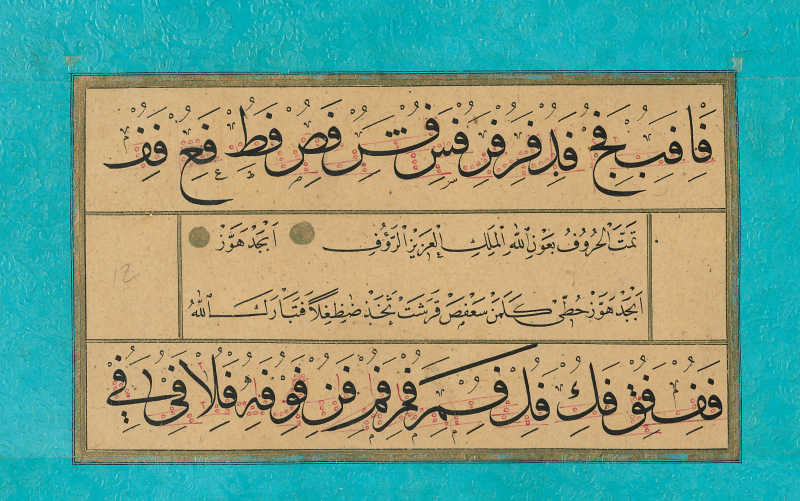 فا فب فج فد فر فر فس فش فص فط فع فف
تمت الحروف بعون الله الملك العزيز الرؤف ابجد هوز
ابجد هوز حطي كلمن سعفص قرشت ثخذ ضظغلا فتبارك الله
فف فق فك فل فم فم فم فن فو فه فلا فى في